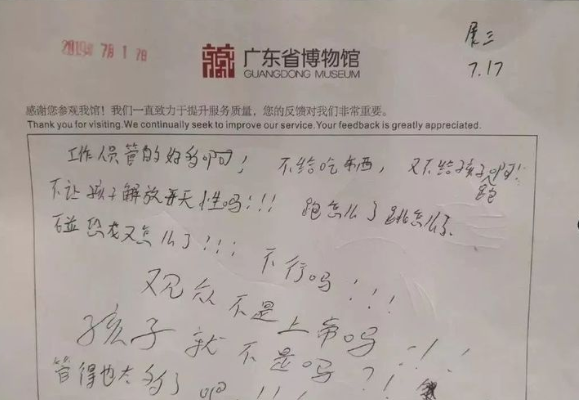 2019年 7月 17日
周三
7.17
广东省博物馆
GUANGDONG MUSEUM
感谢您参观我馆！我们一直致力于提升服务质量，您的反馈对我们非常重要。
Thank you for visiting.We continually seek to improve our service.Your feedback is greatly appreciated.
工作人员管的好多啊！不给吃东西，又不给孩子跑啊！
不让孩子解放天性吗！！！跑怎么了跳怎么了
碰恐龙又怎么了！！！
不行吗！！！
观众不是上帝吗
孩子就不是吗？！！！
管得也太多了吧！！！